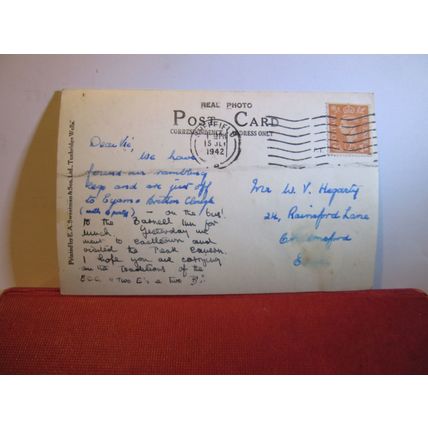 REAL PHOTO
POST CARD
CORRESPONDENCE ADDRESS ONLY
SHEFFIELD
15 JLY
1942
Dear Vic, We have
found our rambling
legs and are just off
to Eyam & Bretton Clough
(with party) – on the 'bus'.
to the Barrell Inn for
lunch. Yesterday we
went to Castleton and
visited the Peak Cavern.
I hope you are carrying
on the traditions of the
"Two E's & two B's".
Mr W. V. Hegarty
24, Rainsford Lane
Chelmsford
Printed by E. A. Sweetman & Son, Ltd., Tunbridge Wells.